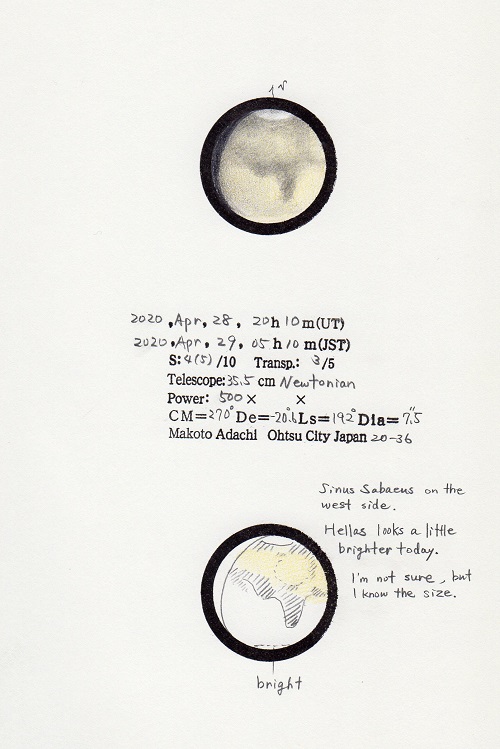 2020, Apr, 28, 20h 10m(UT)
2020, Apr, 29, 05h 10m(JST)
S: 4(5)/10 Transp.: 3/5
Telescope: 35.5 cm Newtonian
Power: 500× ×
CM=270° De=-20.6 Ls=192° Dia=7.5"
Makoto Adachi Ohtsu City Japan 20-36
Sinus Sabaeus on the
west side.
Hellas looks a little
brighter today.
I'm not sure, but
I know the size.
bright